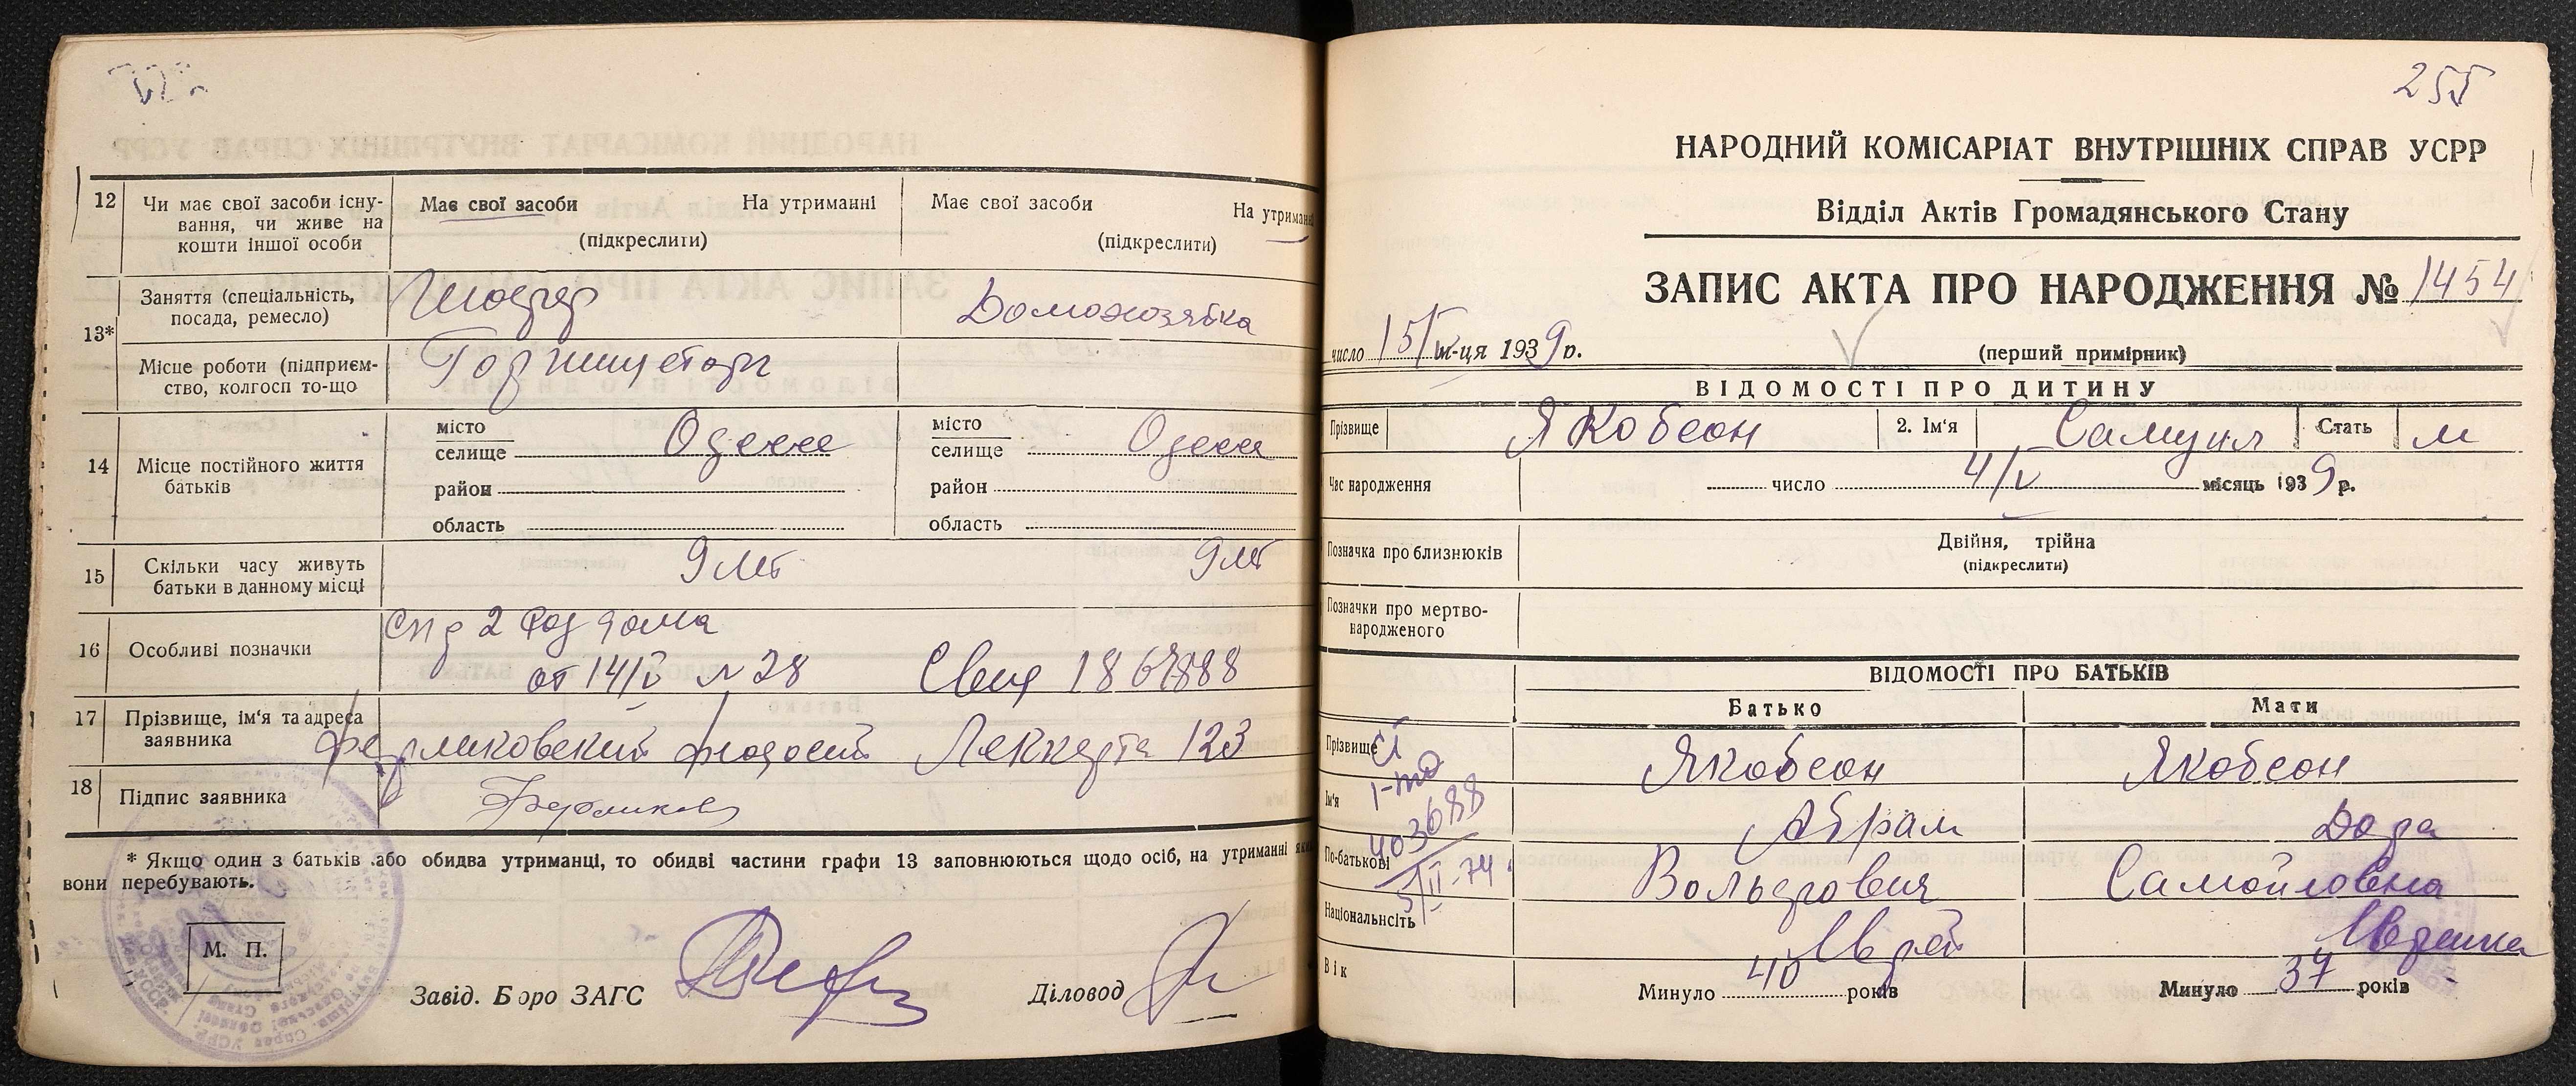 12 Чи має свої засоби існу-
вання, чи живе на
кошти іншої особи
Має свої засоби На утриманні
(підкреслити)
Має свої засоби На утриманні
(підкреслити)
13* Заняття (спеціальність,
посада, ремесло)
Шофер
Домохозяйка
Місце роботи (підприєм-
ство, колгосп то-що
Горпищеторг
14 Місце постійного життя
батьків
місто
селище Одесса
район
область
місто
селище Одесса
район
область
15 Скільки часу живуть
батьки в данному місці
9 лет
9 лет
16 Особливі позначки
спр 2 род дома
от 14/V № 28 Свид
17 Прізвище, ім'я та адреса
заявника
Леккерта 123
18 Підпис заявника
* Якщо один з батьків або обидва утриманці, то обидві частини графи 13 заповнюються щодо осіб, на утриманні яких
вони перебувають.
М. П.
Завід. Бюро ЗАГС
Діловод
255
НАРОДНИЙ КОМІСАРІАТ ВНУТРІШНІХ СПРАВ УСРР
Відділ Актів Громадянського Стану
ЗАПИС АКТА ПРО НАРОДЖЕННЯ № 1454
число 15/V м-ця 1939 р.
(перший примірник)
ВІДОМОСТІ ПРО ДИТИНУ
Прізвище Якобсон 2. Ім'я Самуил Стать м
Час народження число 4/V місяць 1939 р.
Позначка про близнюків
Двійня, трійна
(підкреслити)
Позначки про мертво-
народженого
ВІДОМОСТІ ПРО БАТЬКІВ
Батько Мати
Прізвище Якобсон Якобсон
Ім'я Абрам Дора
По-батькові Вольфович Самойловна
Національність Еврей Еврейка
Вік Минуло 40 років Минуло 37 років
1-ЖД
403688
5/II-74.